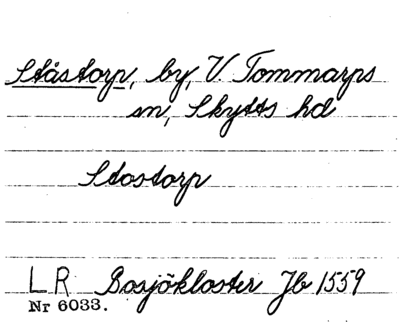 Ståstorp, by, V. Tommarps
sn, Skytts hd
Stostorp
LR Bosjökloster Jb 1559
Nr 6033.